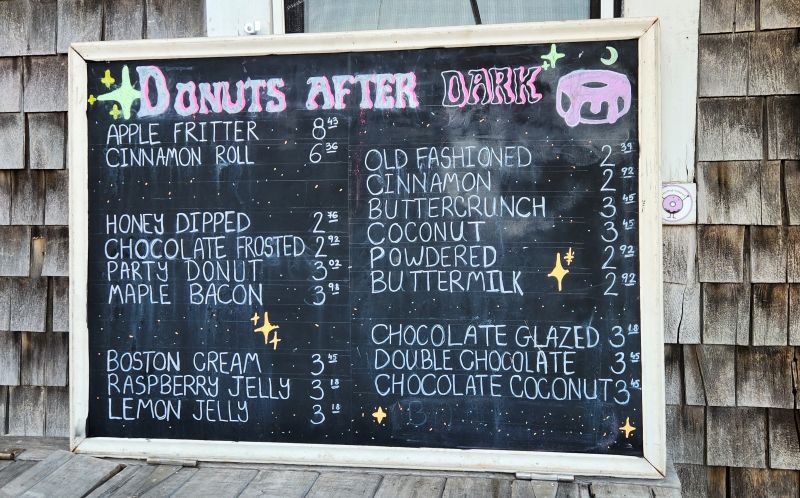 DONUTS AFTER DARK
APPLE FRITTER 8 43
CINNAMON ROLL 6 36
HONEY DIPPED 2 76
CHOCOLATE FROSTED 2 92
PARTY DONUT 3 02
MAPLE BACON 3 98
BOSTON CREAM 3 45
RASPBERRY JELLY 3 18
LEMON JELLY 3 18
OLD FASHIONED 2 39
CINNAMON 2 92
BUTTERCRUNCH 3 45
COCONUT 3 45
POWDERED 2 92
BUTTERMILK 2 92
CHOCOLATE GLAZED 3 18
DOUBLE CHOCOLATE 3 45
CHOCOLATE COCONUT 3 45